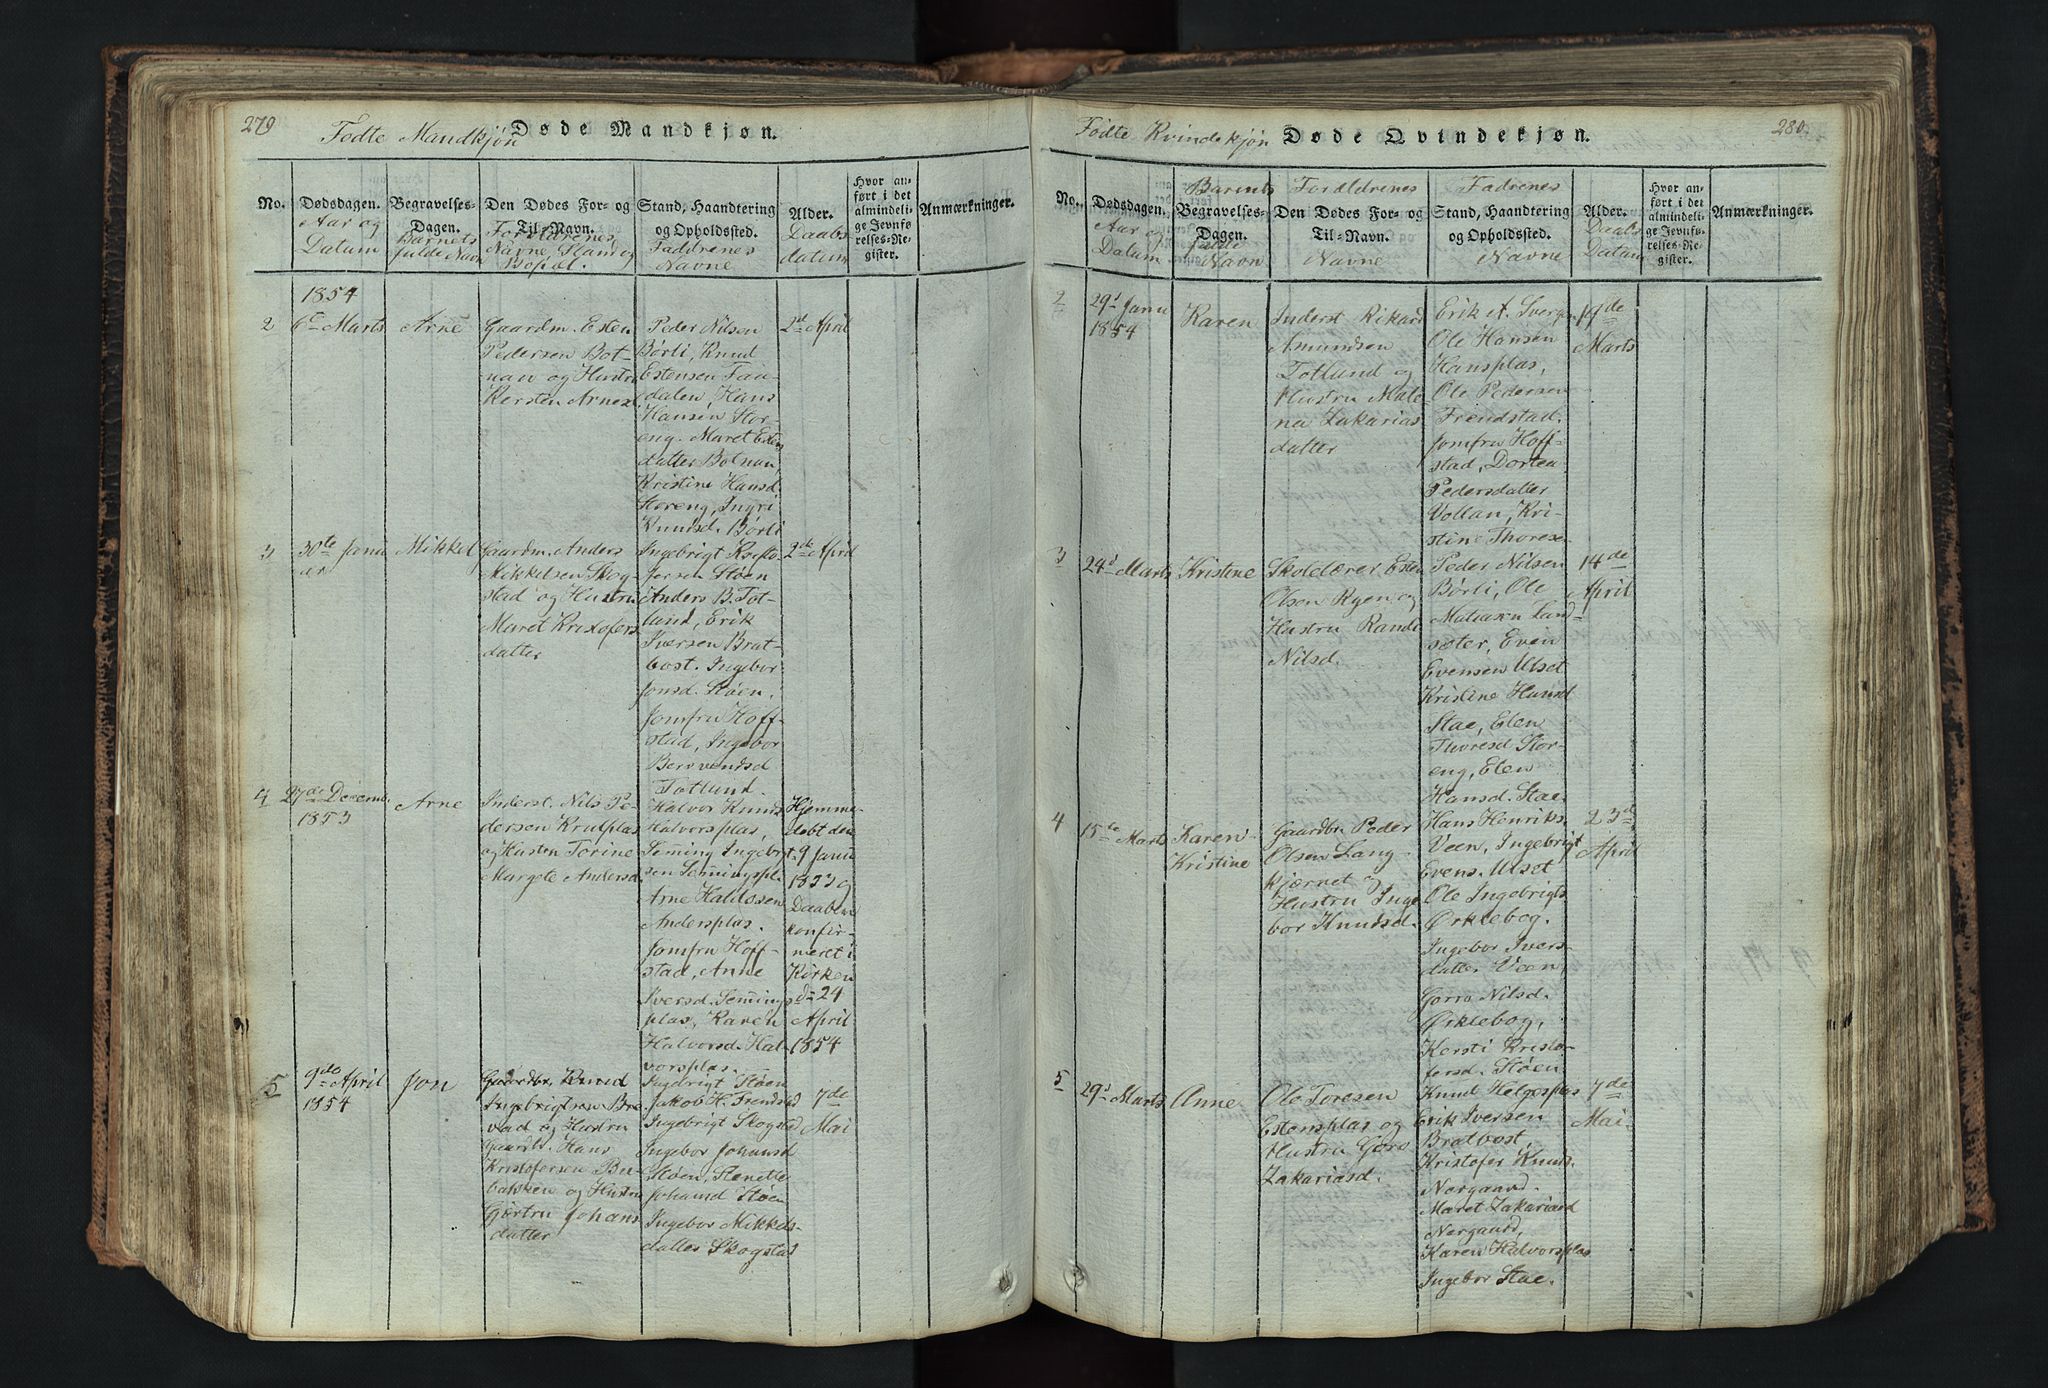 279
Fødte Mandkjøn
Døde Mandkjøn.
No.
Dødsdagen.
Aar og
Datum
Begravelses-
Dagen.
Barnets
fulde Navn
Den Dødes For- og
Til-Navn.
Forældrenes
Navne, Stand og
Bopæl.
Stand, Haandtering
og Opholdssted.
Faddrenes
Navne
Alder.
Daabs
datum
Hvor an-
ført i det
almindeli-
ge Jevnfø-
relses-Re-
gister.
Anmærkninger.
1854
2
6te Marts
Arne
Gaardm. Esten
Pedersen Bot-
nan og Hustru
Kersten Arnesd
Peder Nilsen
Børli, Knud
Estensen Fan-
dalen, Hans
Hansen Stor
eng. Maret Estens
datter Botnan,
Kristine Hansd.
Storeng, Ingri
Knudsd. Børli
2d April
3
30te Janu
ar
Mikkel
Gaardm. Anders
Mikkelsen Skog-
stad og Hustru
Maret Kristofers
datter
Ingebrigt Kristo
fersen Støen
Anders B. Tot-
lund, Erik
Iversen Brat-
bost. Ingebor
Jonsd. Støen.
Jomfru Hoff-
stad, Ingebor
Berovendsd
Totlund.
2de April
4
27de Decemb.
1853
Arne
Inderst. Nils Pe-
dersen Krulplas
og Husten Torine
Margete Andersd.
Halvor Knuds
Halvorsplas,
Semming Ingebrigt
sen Semingspl.
Arne Haldssen
Andersplas.
Jomfru Hoff-
stad, Anne
Iversd. Semings
plas, Karen
Halvorsd. Hal-
vorsplas.
Hjemme
døbt den
9 Janu
1853 og
Daaben
konfir-
meret i
Kirken
d. 24
April
1854
5
9de April
1854
Jon
Gaardbr. Knud
Ingebrigtsen Bre
vad og Hustru
Gaardbr. Hans
Kristofersen Bu-
bakken og Hustru
Gjertru Johans
datter
Ingebrigt Støen
Jakob H. Frendstad
Ingebrigt Skogstad
Ingebor Johansd
Støen, Henette
Johansd Støen
Ingebor Mikkels-
datter Skogstad
7de
Mai
280.
Fødte Kvindekjøn
Døde Qvindekjøn.
No.
Dødsdagen.
Aar og
Datum
Barnets
Begravelses-
Dagen.
fulde
Navn
Forældrenes
Den Dødes For- og
Til-Navn.
Navne
Fadrenes
Stand, Haandtering
og Opholdssted.
Navne
Alder.
Daabs
Datum
Hvor an-
ført i det
almindeli-
ge Jevnfø-
relses-Re-
gister.
Anmærkninger.
2
29d Janu
1854
Karen
Inderst Rikard
Amundsen
Totlund og
Hustru Male-
na Zakarias
datter
Erik A. Svergen
Ole Hansen
Hansplas,
Ole Pedersen
Frendstad.
Jomfru Hoff-
stad, Dortea
Pedersdatter
Vollan, Kri-
stine Thorese
19de
Marts
3
24d Marts
Kristine
Skolelærer Esten
Olsen Ryen og
Hustru Randi
Nilsd.
Peder Nilsen
Børli, Ole
Matiasen Land-
sæter, Even
Evensen Ulset
Kristine Hansd
Stae, Elen
Thoresd Stor
eng, Elen
Hansd. Stae.
14de
April
4
15te Marts
Karen-
Kristine
Gaardbr. Peder
Olsen Lang-
kjærnet og
Hustru Inge
bor Knudsd.
Hans Henriks.
Veen, Ingebrigt
Evens. Ulset
Ole Ingebrigts
Ørklebog.
Ingebor Ivers-
datter Veen,
Gorro Nilsd.
Ørklebog,
Kersti Kristo-
fersd. Støen
23d
April
5
29d Marts
Anne
Ole Toresen
Estensplas og
Hustru Goro
Zakariasd.
Knud Helgesplas
Erik Iversen
Bratbost,
Kristofer Knuds.
Norgaard.
Maret Zakariasd
Norgaard,
Karen Halvorsplas
Ingebor Stae.
7de
Mai.